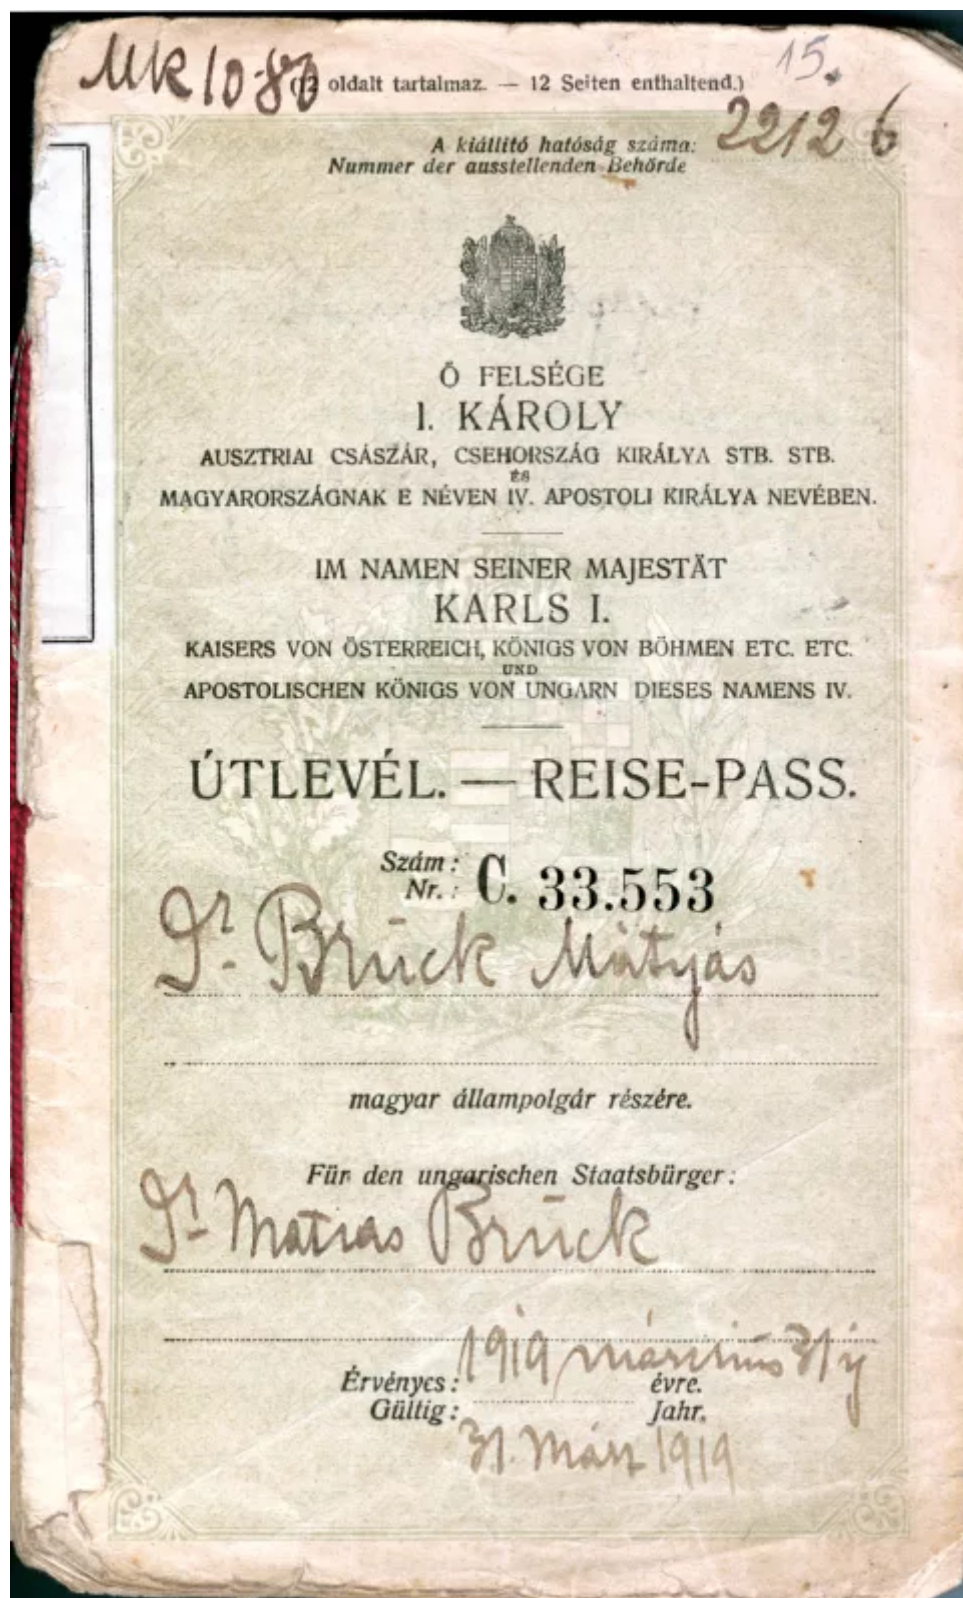 MK 10-80 15.
(12 oldalt tartalmaz. — 12 Seiten enthaltend.)
A kiállító hatóság száma: 2212 6
Nummer der ausstellenden Behörde
Ő FELSÉGE
I. KÁROLY
AUSZTRIAI CSÁSZÁR, CSEHORSZÁG KIRÁLYA STB. STB.
ÉS
MAGYARORSZÁGNAK E NÉVEN IV. APOSTOLI KIRÁLYA NEVÉBEN.
IM NAMEN SEINER MAJESTÄT
KARLS I.
KAISERS VON ÖSTERREICH, KÖNIGS VON BÖHMEN ETC. ETC.
UND
APOSTOLISCHEN KÖNIGS VON UNGARN DIESES NAMENS IV.
ÚTLEVÉL. — REISE-PASS.
Szám:
Nr.: C. 33.553
Dr. Brück Mátyás
magyar állampolgár részére.
Für den ungarischen Staatsbürger:
Dr. Matias Brück
1919 március 31 ig
Érvényes: évre.
Gültig: Jahr.
31. März 1919